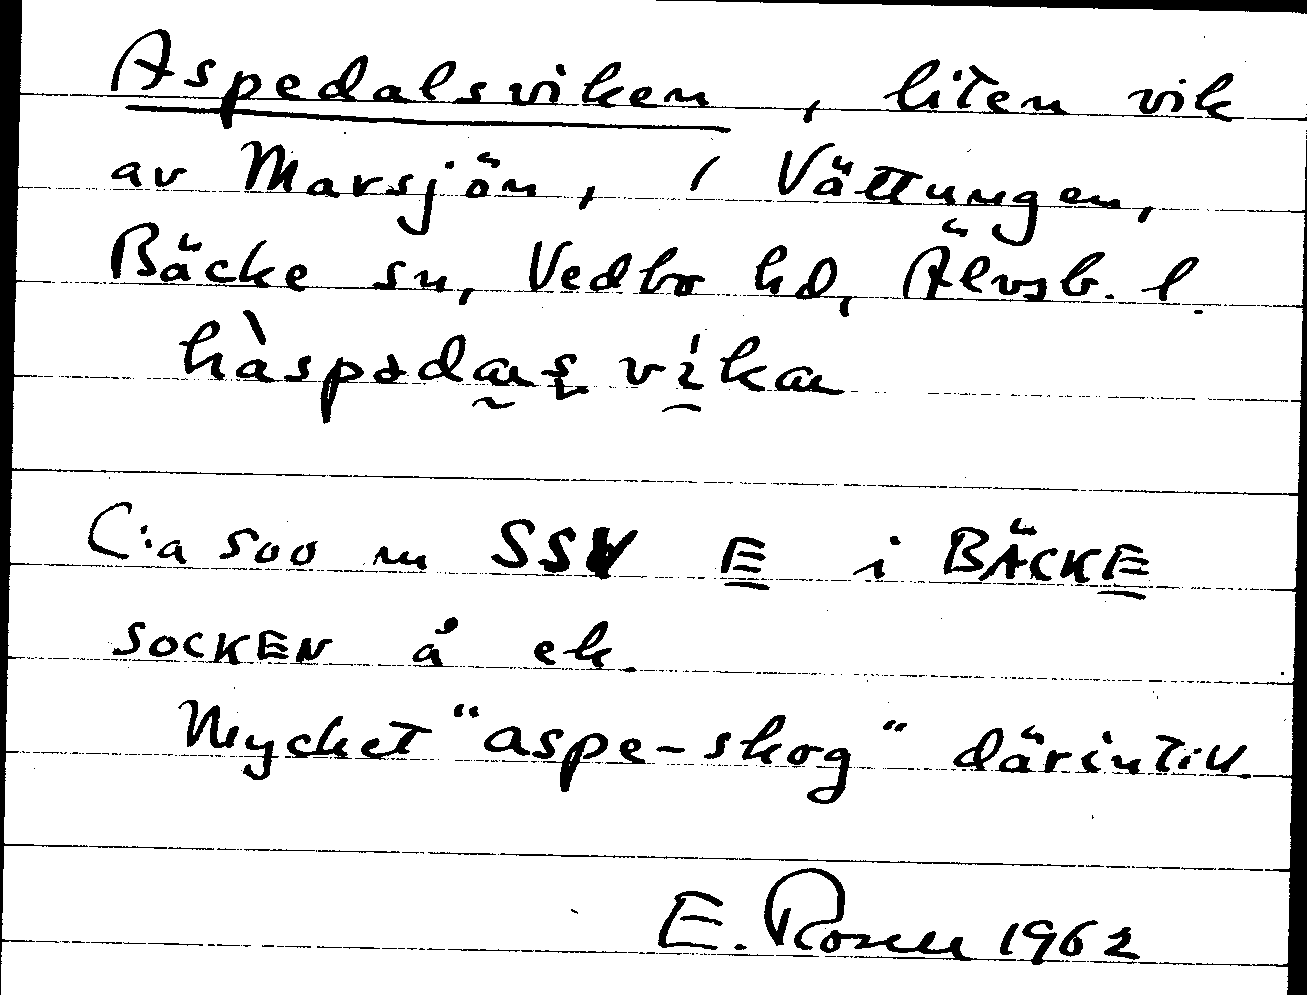 Aspedalsviken, liten vik
av Marsjön, i Vättungen,
Bäcke sn, Vedbo hd, Älvsb. l.
hàspədas víka
C:a 500 m SSV E i BÄCKE
SOCKEN å ek.
Mycket "aspe-skog" därintill.
E. Rosén 1962